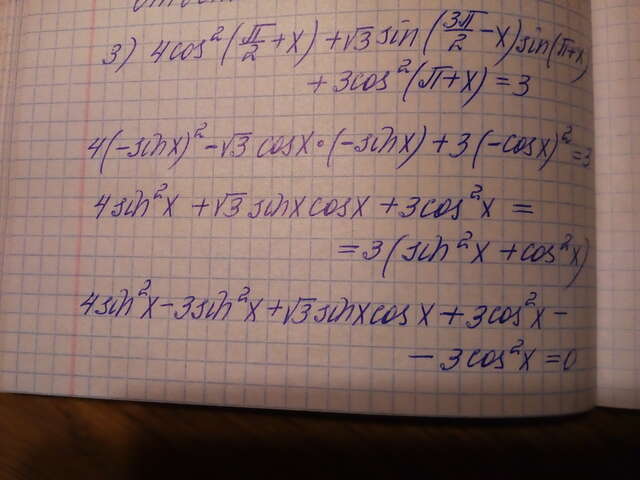 3) 4cos²(π/2+x) + √3 sin(3π/2-x) sin(π+x)
+ 3cos²(π+x) = 3
4(-sinx)² - √3 cosx·(-sinx) + 3(-cosx)² = 3
4sin²x + √3 sinx cosx + 3cos²x =
= 3(sin²x + cos²x)
4sin²x - 3sin²x + √3 sinx cosx + 3cos²x -
- 3cos²x = 0